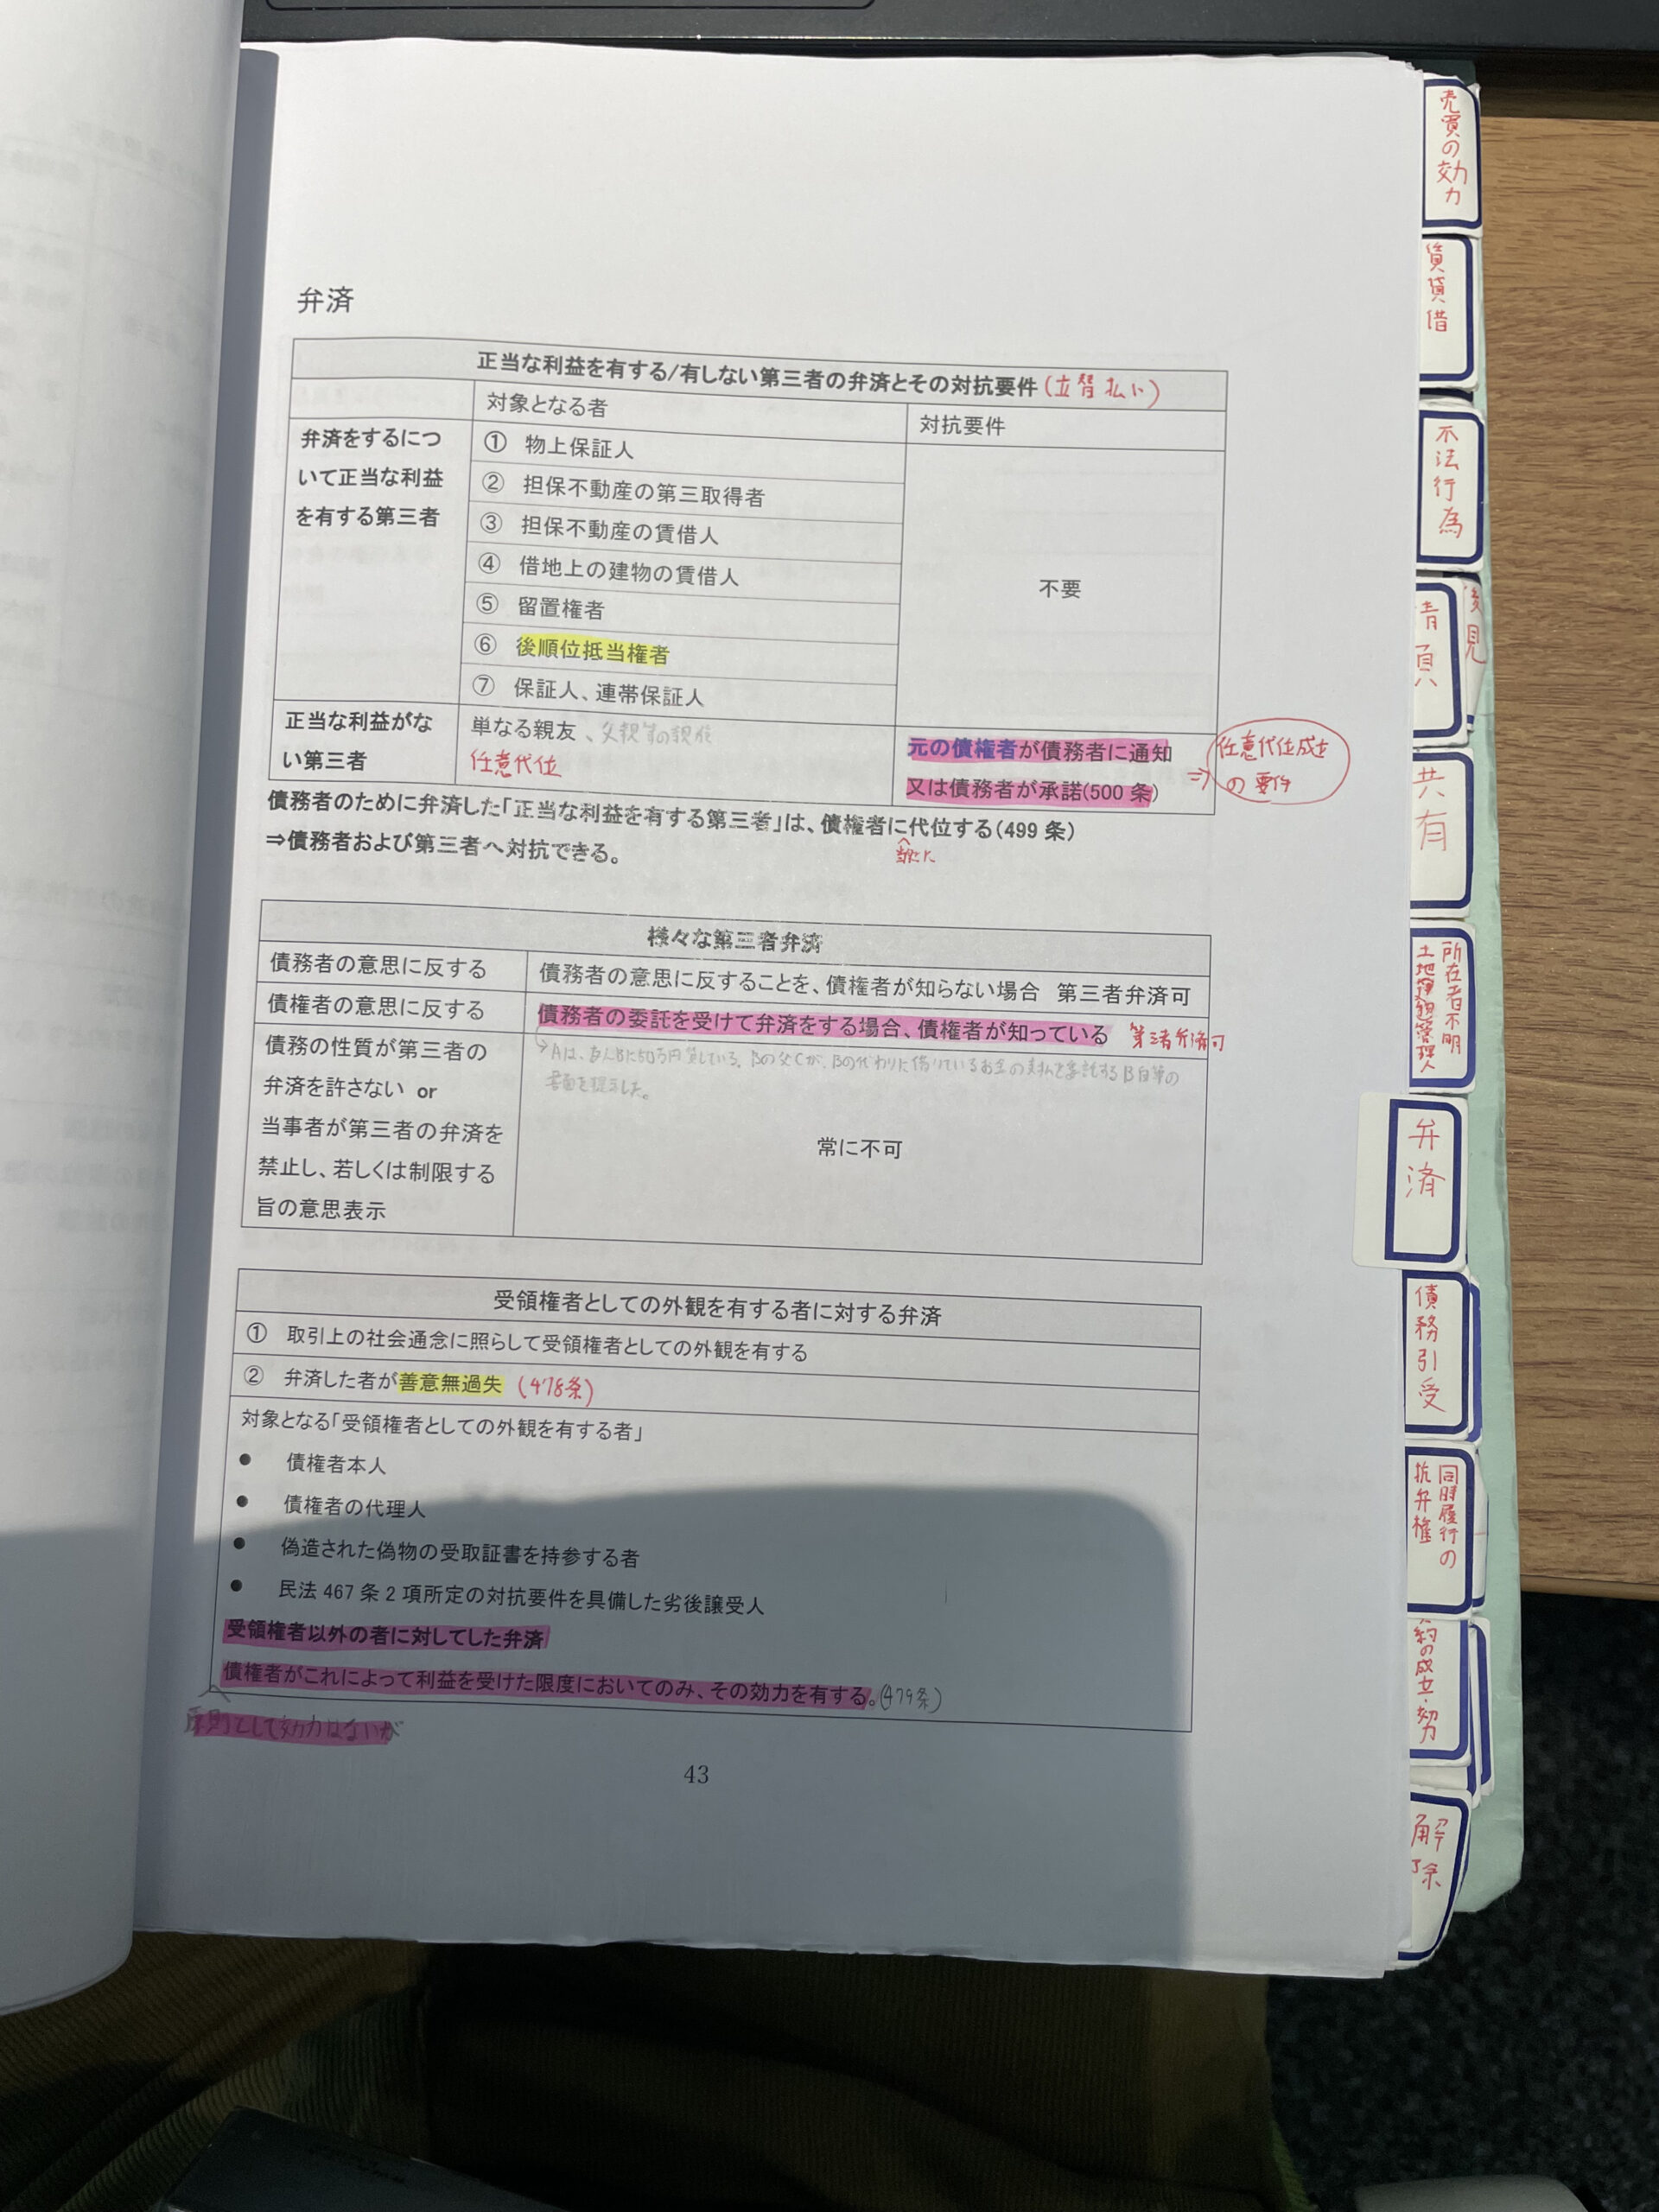 弁済
正当な利益を有する/有しない第三者の弁済とその対抗要件(立替払い)
対象となる者
対抗要件
弁済をするにつ
いて正当な利益
を有する第三者
① 物上保証人
② 担保不動産の第三取得者
③ 担保不動産の賃借人
④ 借地上の建物の賃借人
⑤ 留置権者
⑥ 後順位抵当権者
⑦ 保証人、連帯保証人
不要
正当な利益がな
い第三者
単なる親友、父親等の親族
任意代位
元の債権者が債務者に通知
又は債務者が承諾(500条)
⇒任意代位成立
の要件
債務者のために弁済した「正当な利益を有する第三者」は、債権者に代位する(499条)
当然に
⇒債務者および第三者へ対抗できる。
様々な第三者弁済
債務者の意思に反する
債務者の意思に反することを、債権者が知らない場合 第三者弁済可
債権者の意思に反する
債務者の委託を受けて弁済をする場合、債権者が知っている 第三者弁済可
Aは、友人Bに50万円貸している。Bの父Cが、Bの代わりに借りているお金の支払を委託するB自筆の
書面を提示した。
債務の性質が第三者の
弁済を許さない or
当事者が第三者の弁済を
禁止し、若しくは制限する
旨の意思表示
常に不可
受領権者としての外観を有する者に対する弁済
① 取引上の社会通念に照らして受領権者としての外観を有する
② 弁済した者が善意無過失 (478条)
対象となる「受領権者としての外観を有する者」
● 債権者本人
● 債権者の代理人
● 偽造された偽物の受取証書を持参する者
● 民法467条2項所定の対抗要件を具備した劣後譲受人
受領権者以外の者に対してした弁済
債権者がこれによって利益を受けた限度においてのみ、その効力を有する。(479条)
原則として効力はないが
43
売買の効力
賃貸借
不法行為
請負
後見
共有
所在者不明
土地建物管理人
弁済
債務引受
同時履行の
抗弁権
約の成立・効力
解除